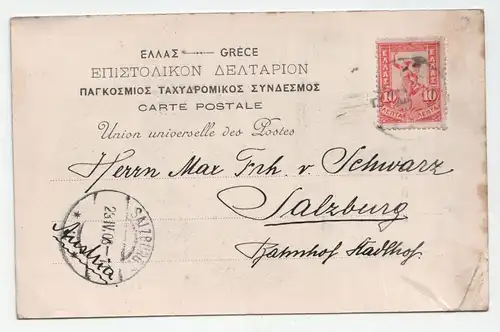 ΕΛΛΑΣ GRÈCE
ΕΠΙΣΤΟΛΙΚΟΝ ΔΕΛΤΑΡΙΟΝ
ΠΑΓΚΟΣΜΙΟΣ ΤΑΧΥΔΡΟΜΙΚΟΣ ΣΥΝΔΕΣΜΟΣ
CARTE POSTALE
Union universelle des Postes
ΕΛΛΑΣ
10 10
ΛΕΠΤΑ ΛΕΠΤΑ
Herrn Max Frh. v. Schwarz
Salzburg
Bahnhof Stadthof
SALZBURG
23 IV 00
Austria